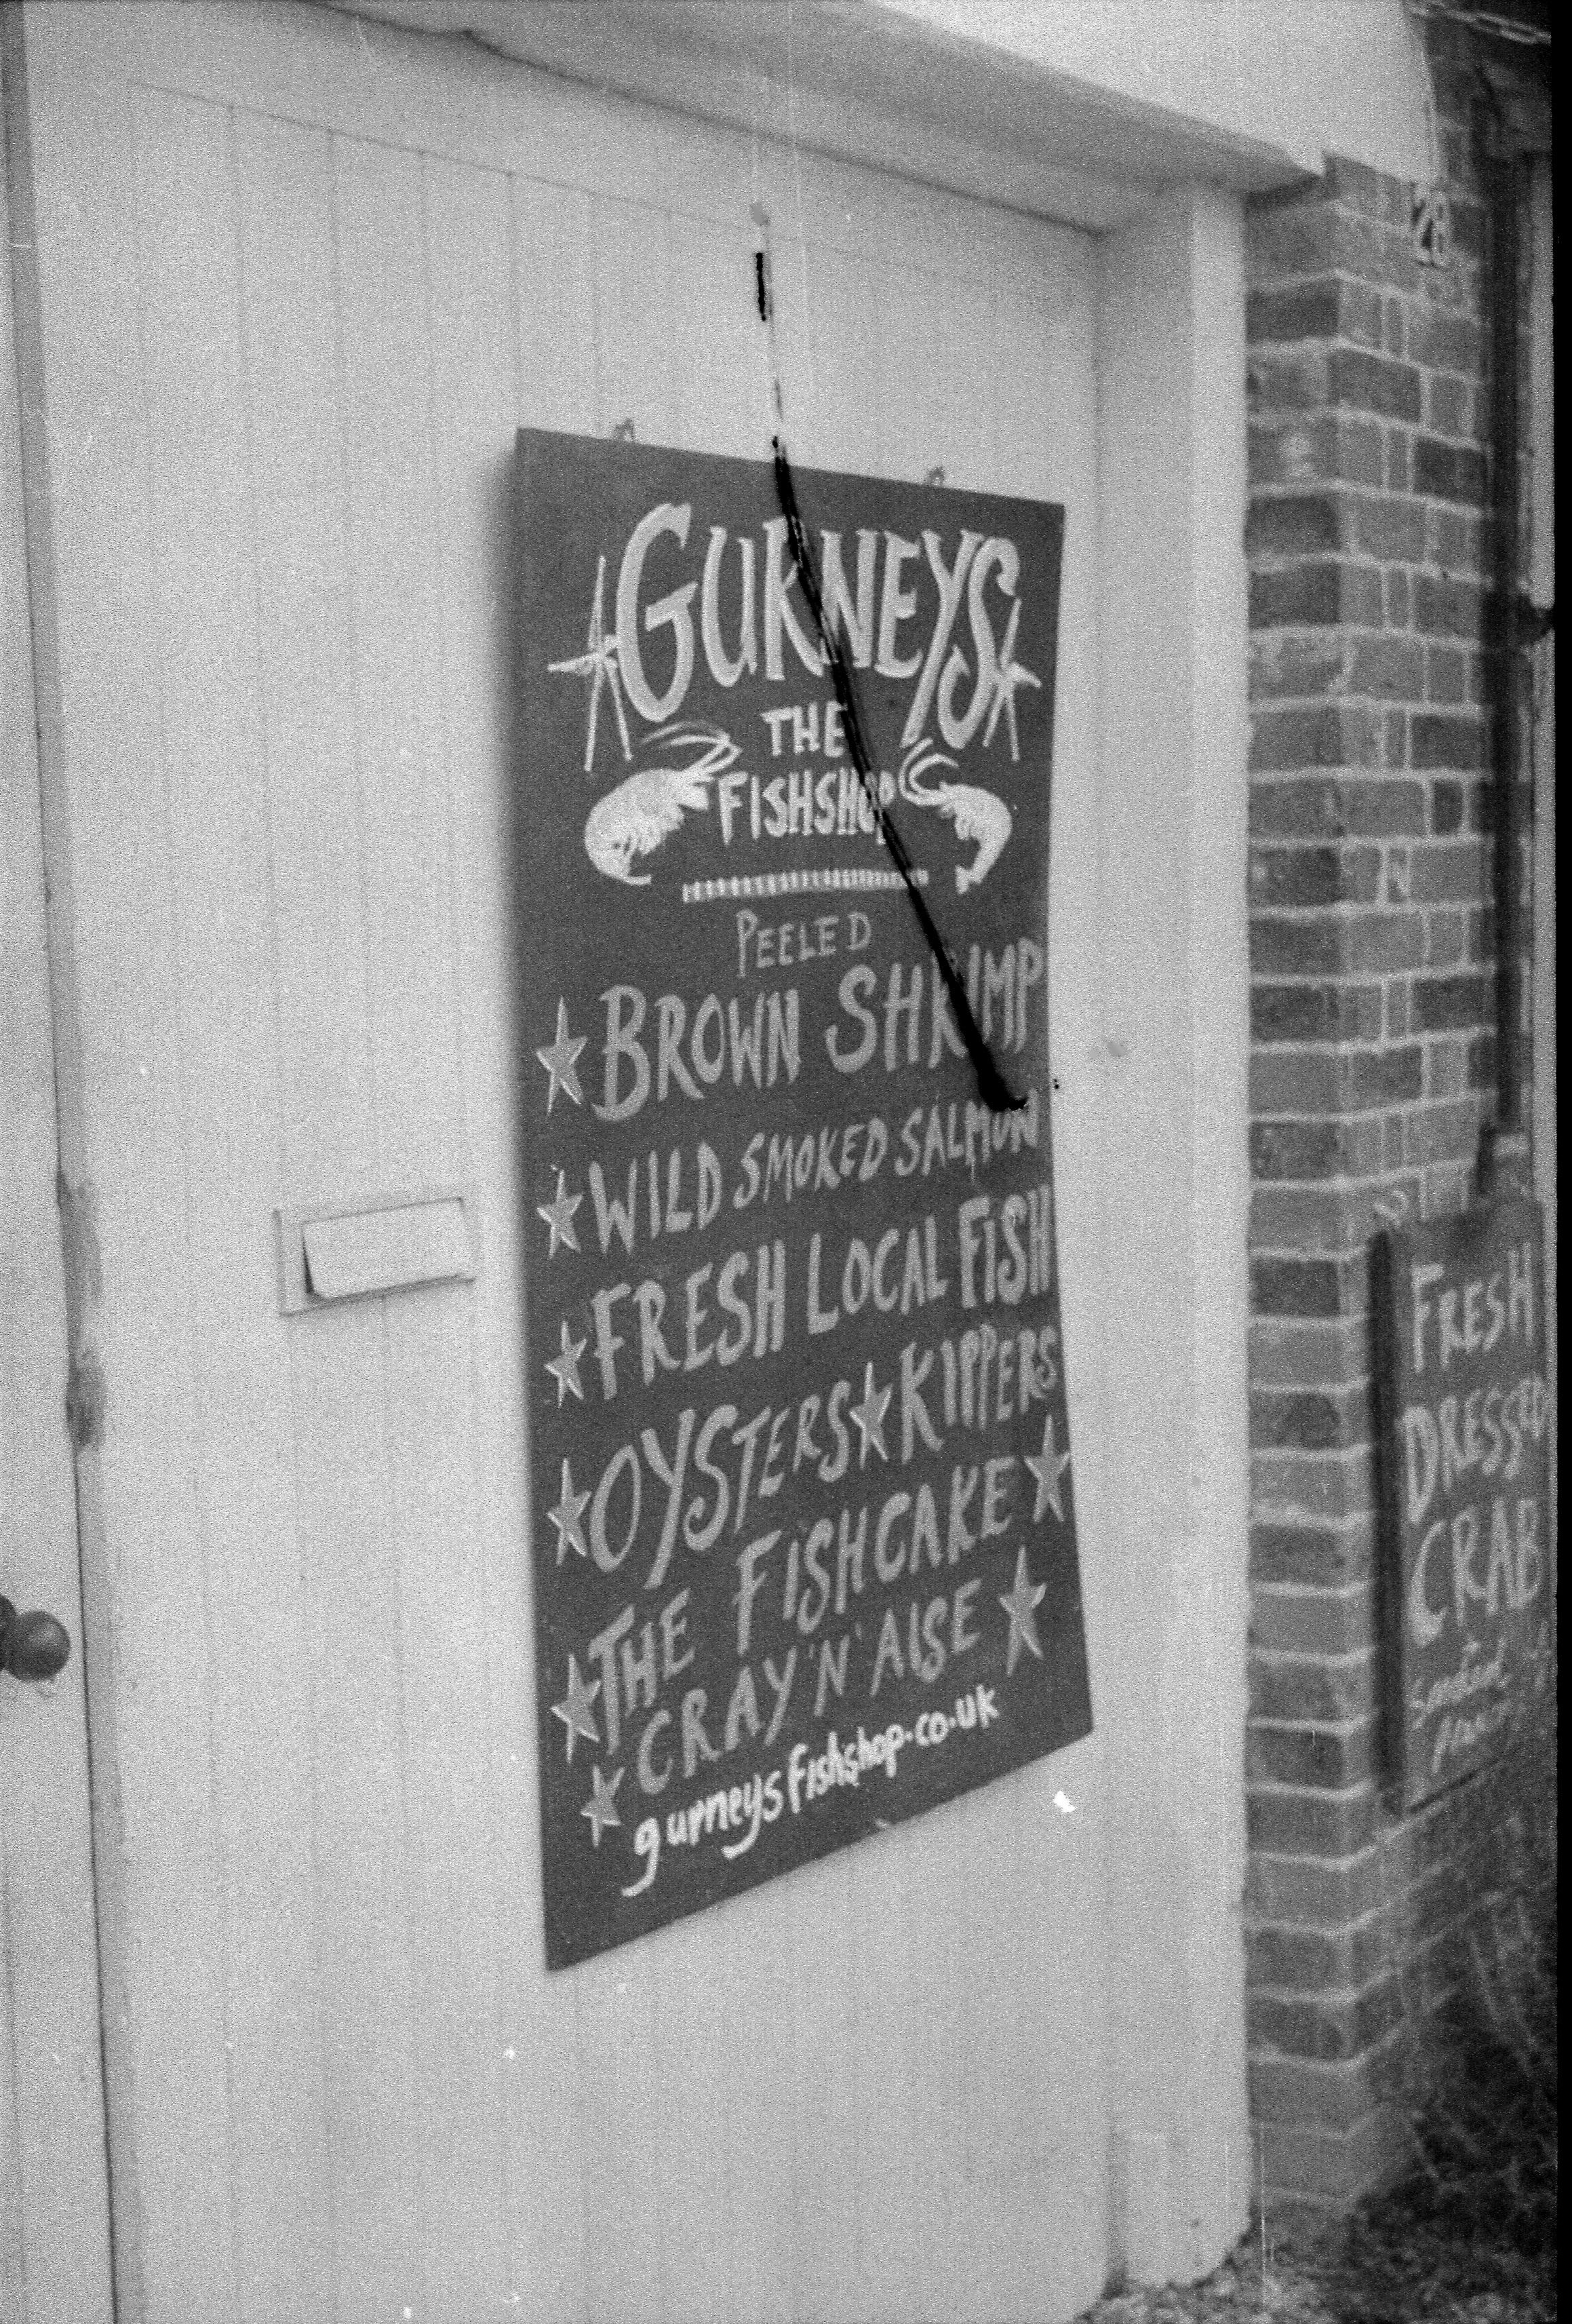 GURNEYS
THE
FISHSHOP
PEELED
BROWN SHRIMP
WILD SMOKED SALMON
FRESH LOCAL FISH
OYSTERS★KIPPERS
THE FISHCAKE
CRAY'N'AISE
gurneysfishshop.co.uk
28
FRESH
DRESSED
CRAB